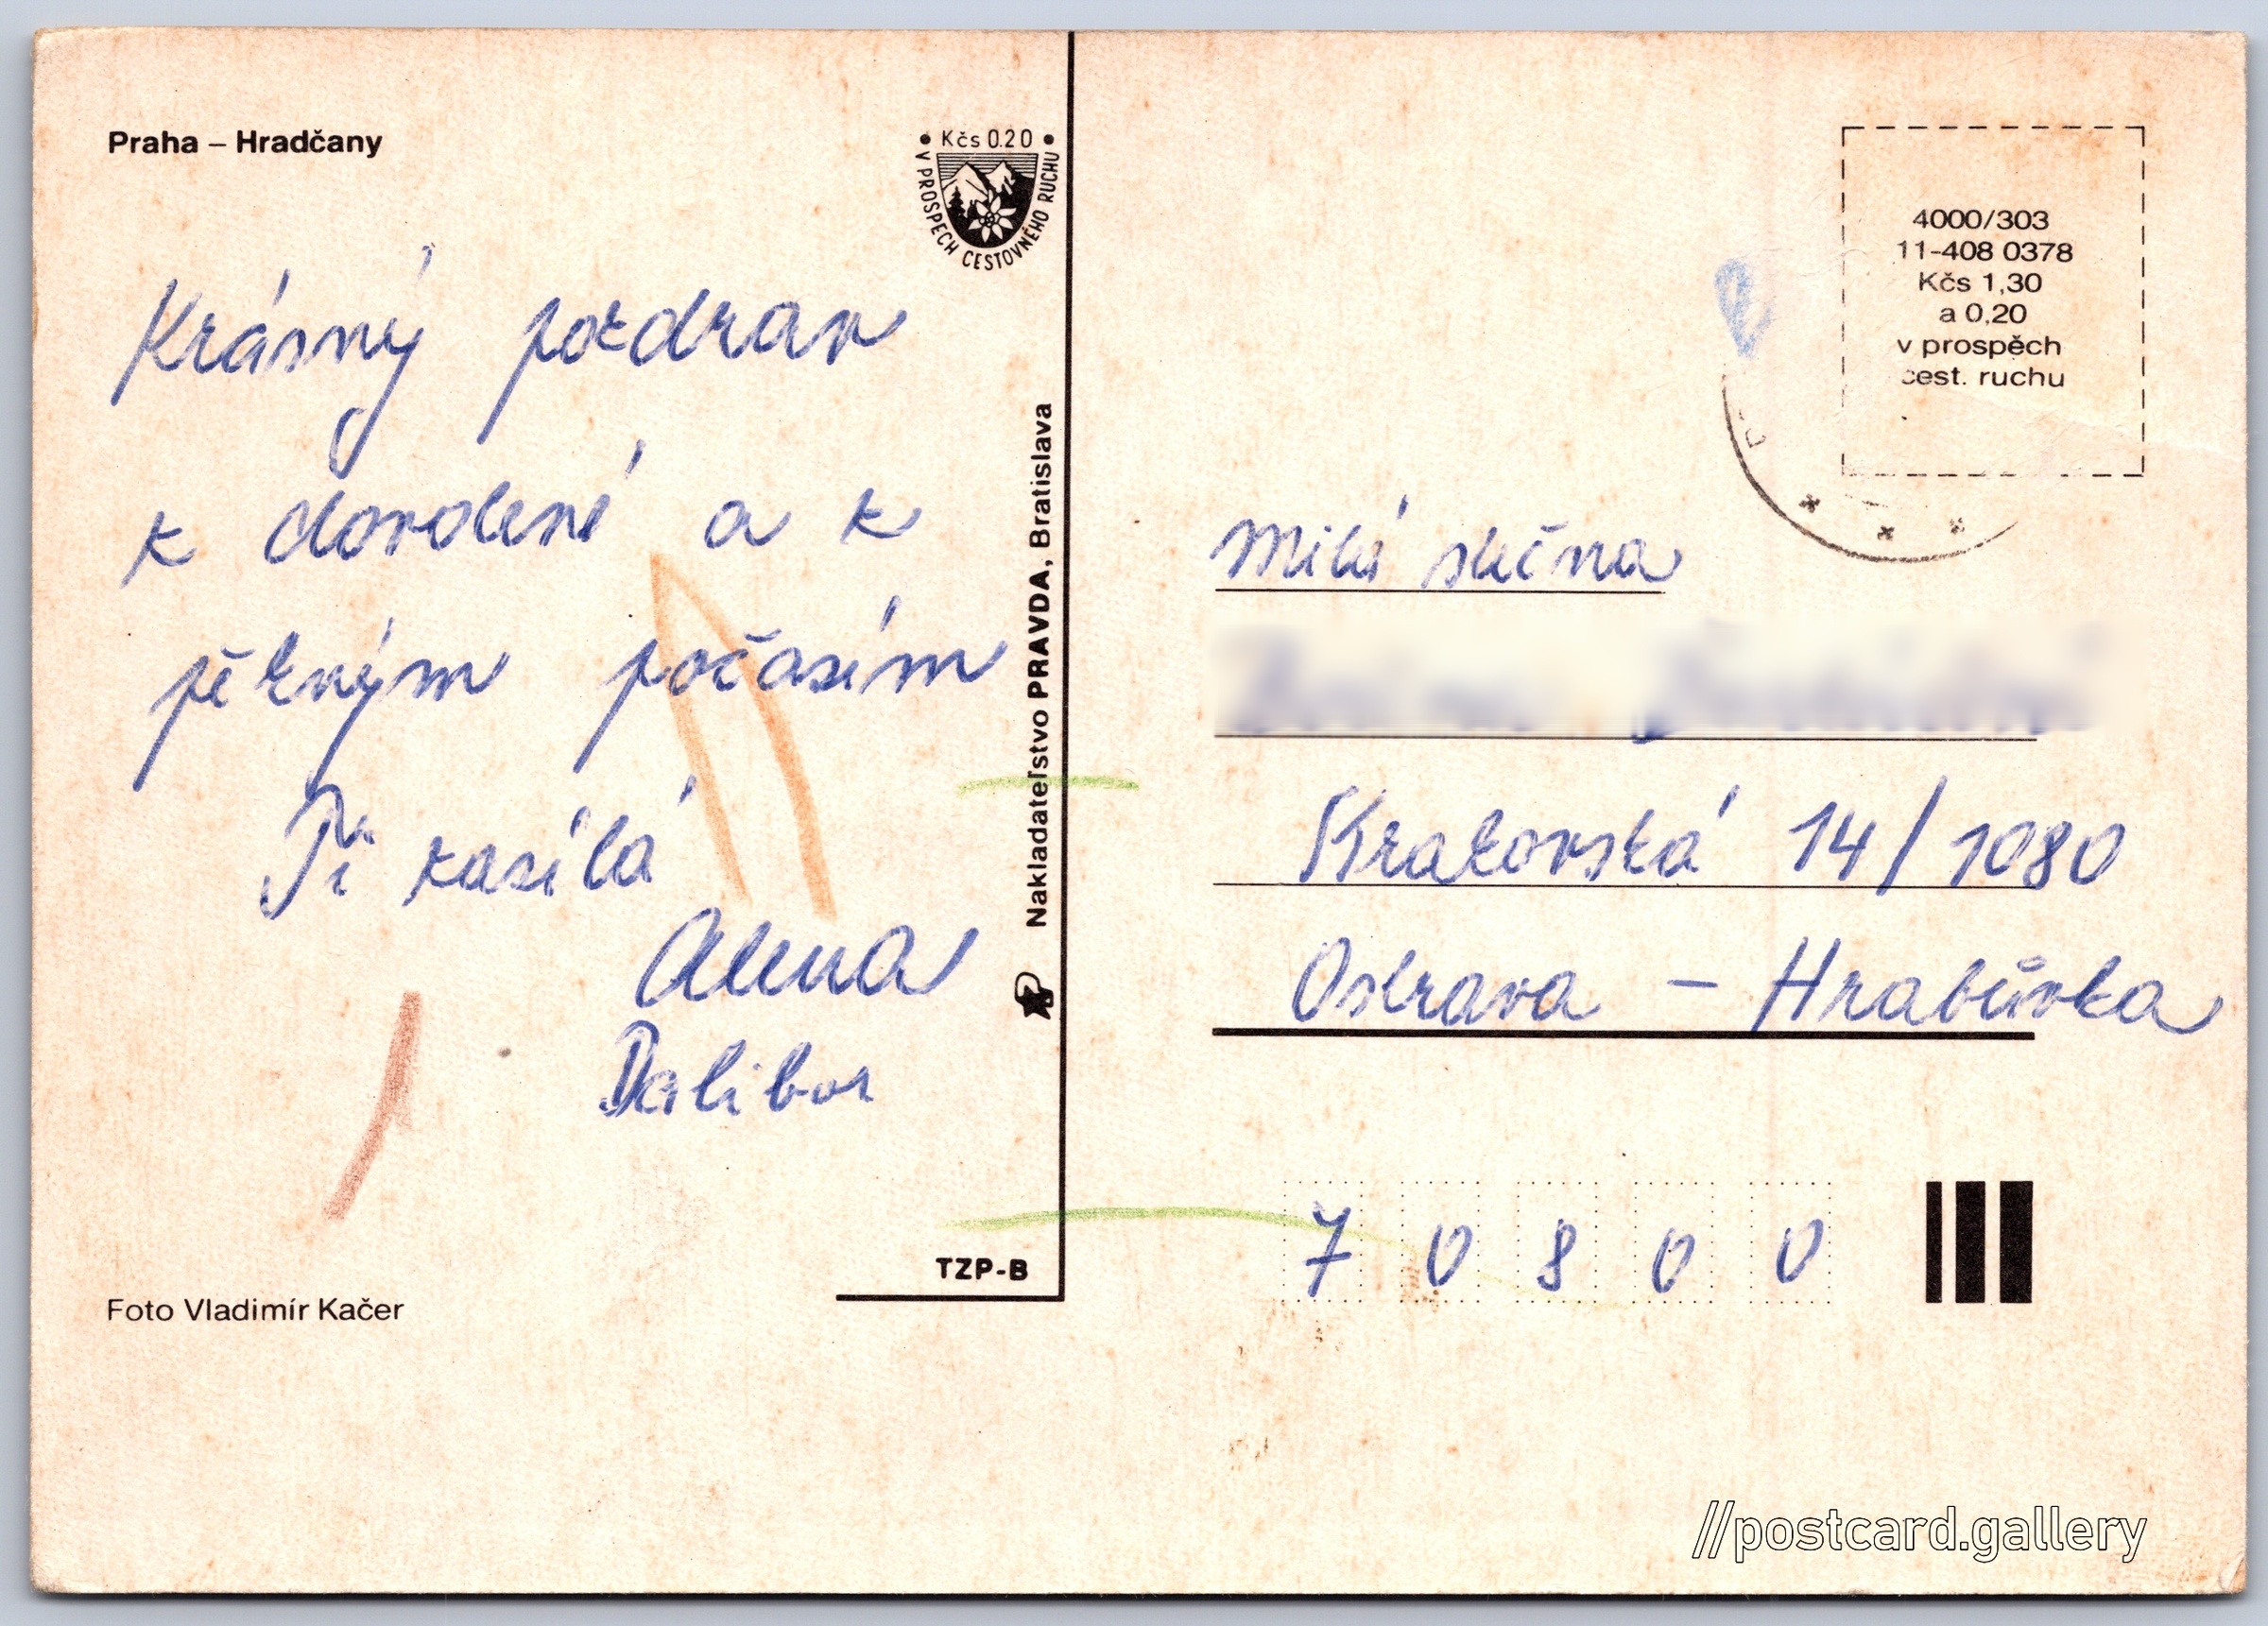 Praha – Hradčany
• Kčs 0.20 •
V PROSPECH CESTOVNÉHO RUCHU
Krásný pozdrav
k dovolené a k
pěkným počasím
Ti zasílá
Alena
Dalibor
Nakladateľstvo PRAVDA, Bratislava
TZP-B
Foto Vladimír Kačer
4000/303
11-408 0378
Kčs 1,30
a 0,20
v prospěch
cest. ruchu
Milá slečna
Krakovská 14/1080
Ostrava – Hrabůvka
7 0 8 0 0
//postcard.gallery